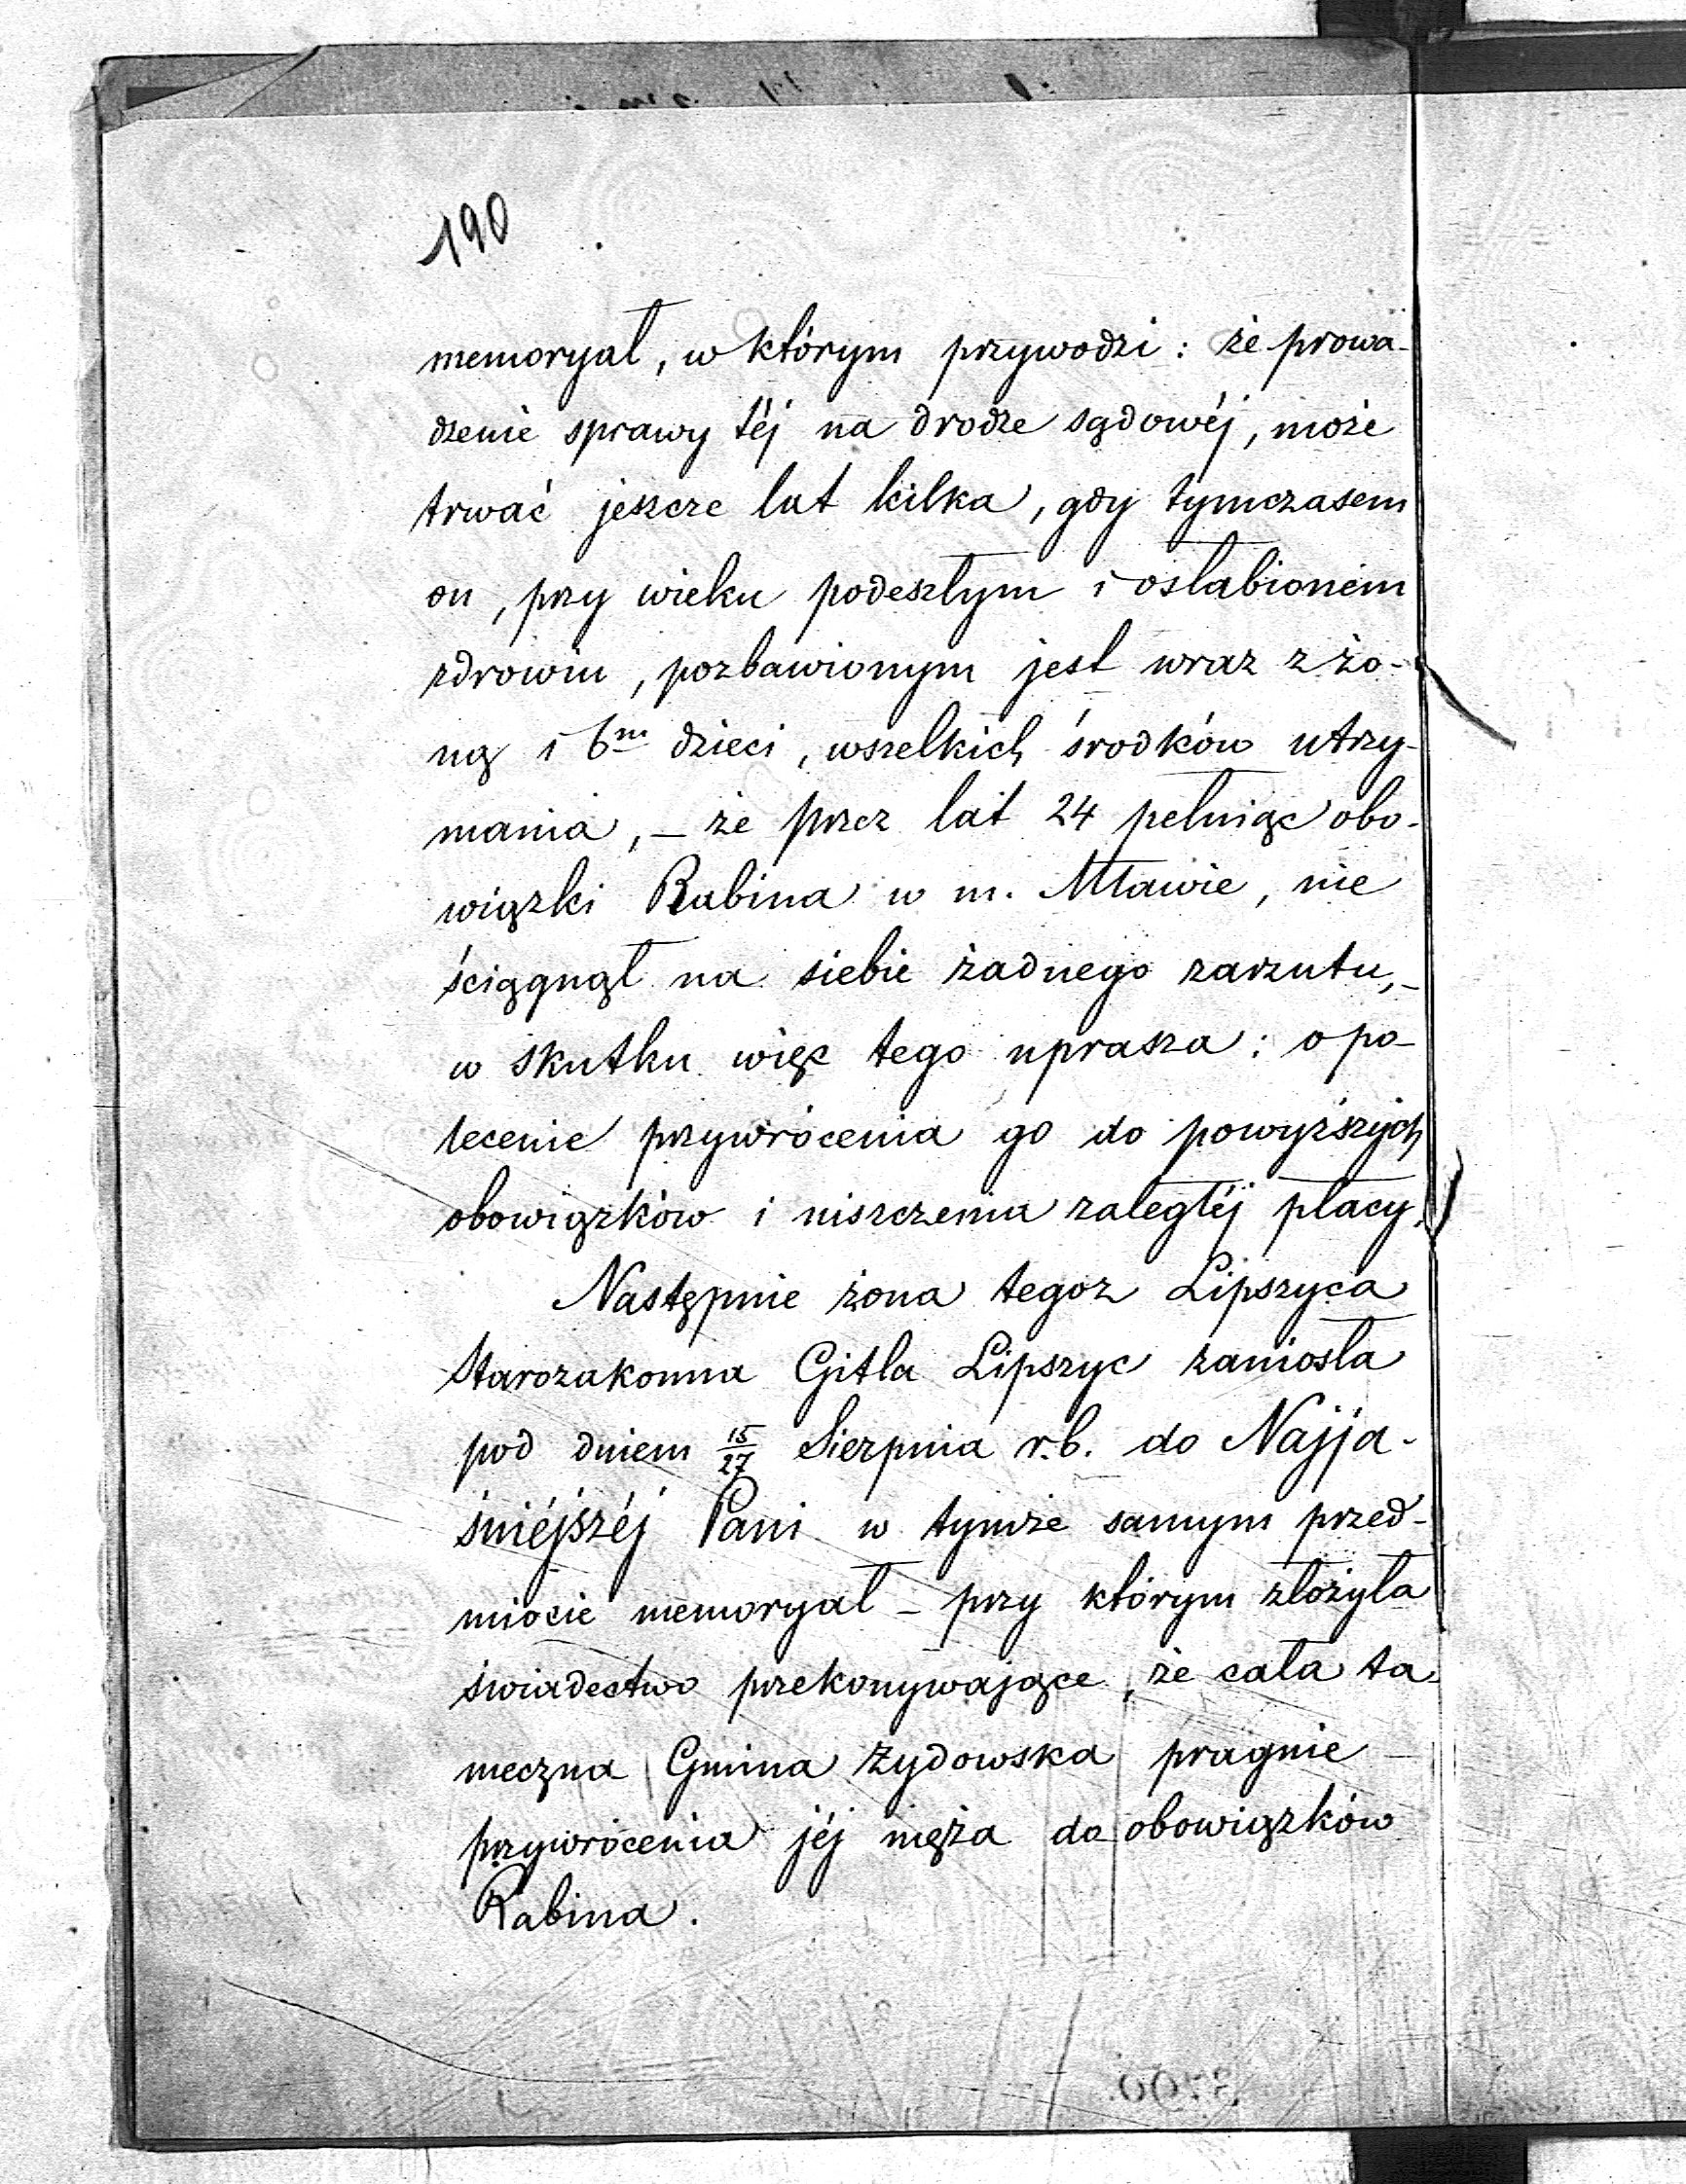 190
memoryał, w którym przywodzi: że prowa-
dzenie sprawy téj na drodze sądowéj, może
trwać jeszcze lat kilka, gdy tymczasem
on, przy wieku podeszłym i osłabioném
zdrowiu, pozbawionym jest wraz z żo-
ną i 6m dzieci, wszelkich środków utrzy-
mania, – że przez lat 24 pełniąc obo-
wiązki Rabina w m. Mławie, nie
ściągnął na siebie żadnego zarzutu, –
w skutku więc tego uprasza: o po-
lecenie przywrócenia go do powyższych
obowiązków i uiszczenia zaległéj płacy.
Następnie żona tegoż Lipszyca
Starozakonna Gitla Lipszyc zaniosła
pod dniem 15/27 Sierpnia r.b. do Najja-
śniéjszéj Pani w tymże samym przed-
miocie memoryał – przy którym złożyła
świadectwo przekonywające, że cała ta-
meczna Gmina Żydowska pragnie
przywrócenia jéj męża do obowiązków
Rabina.